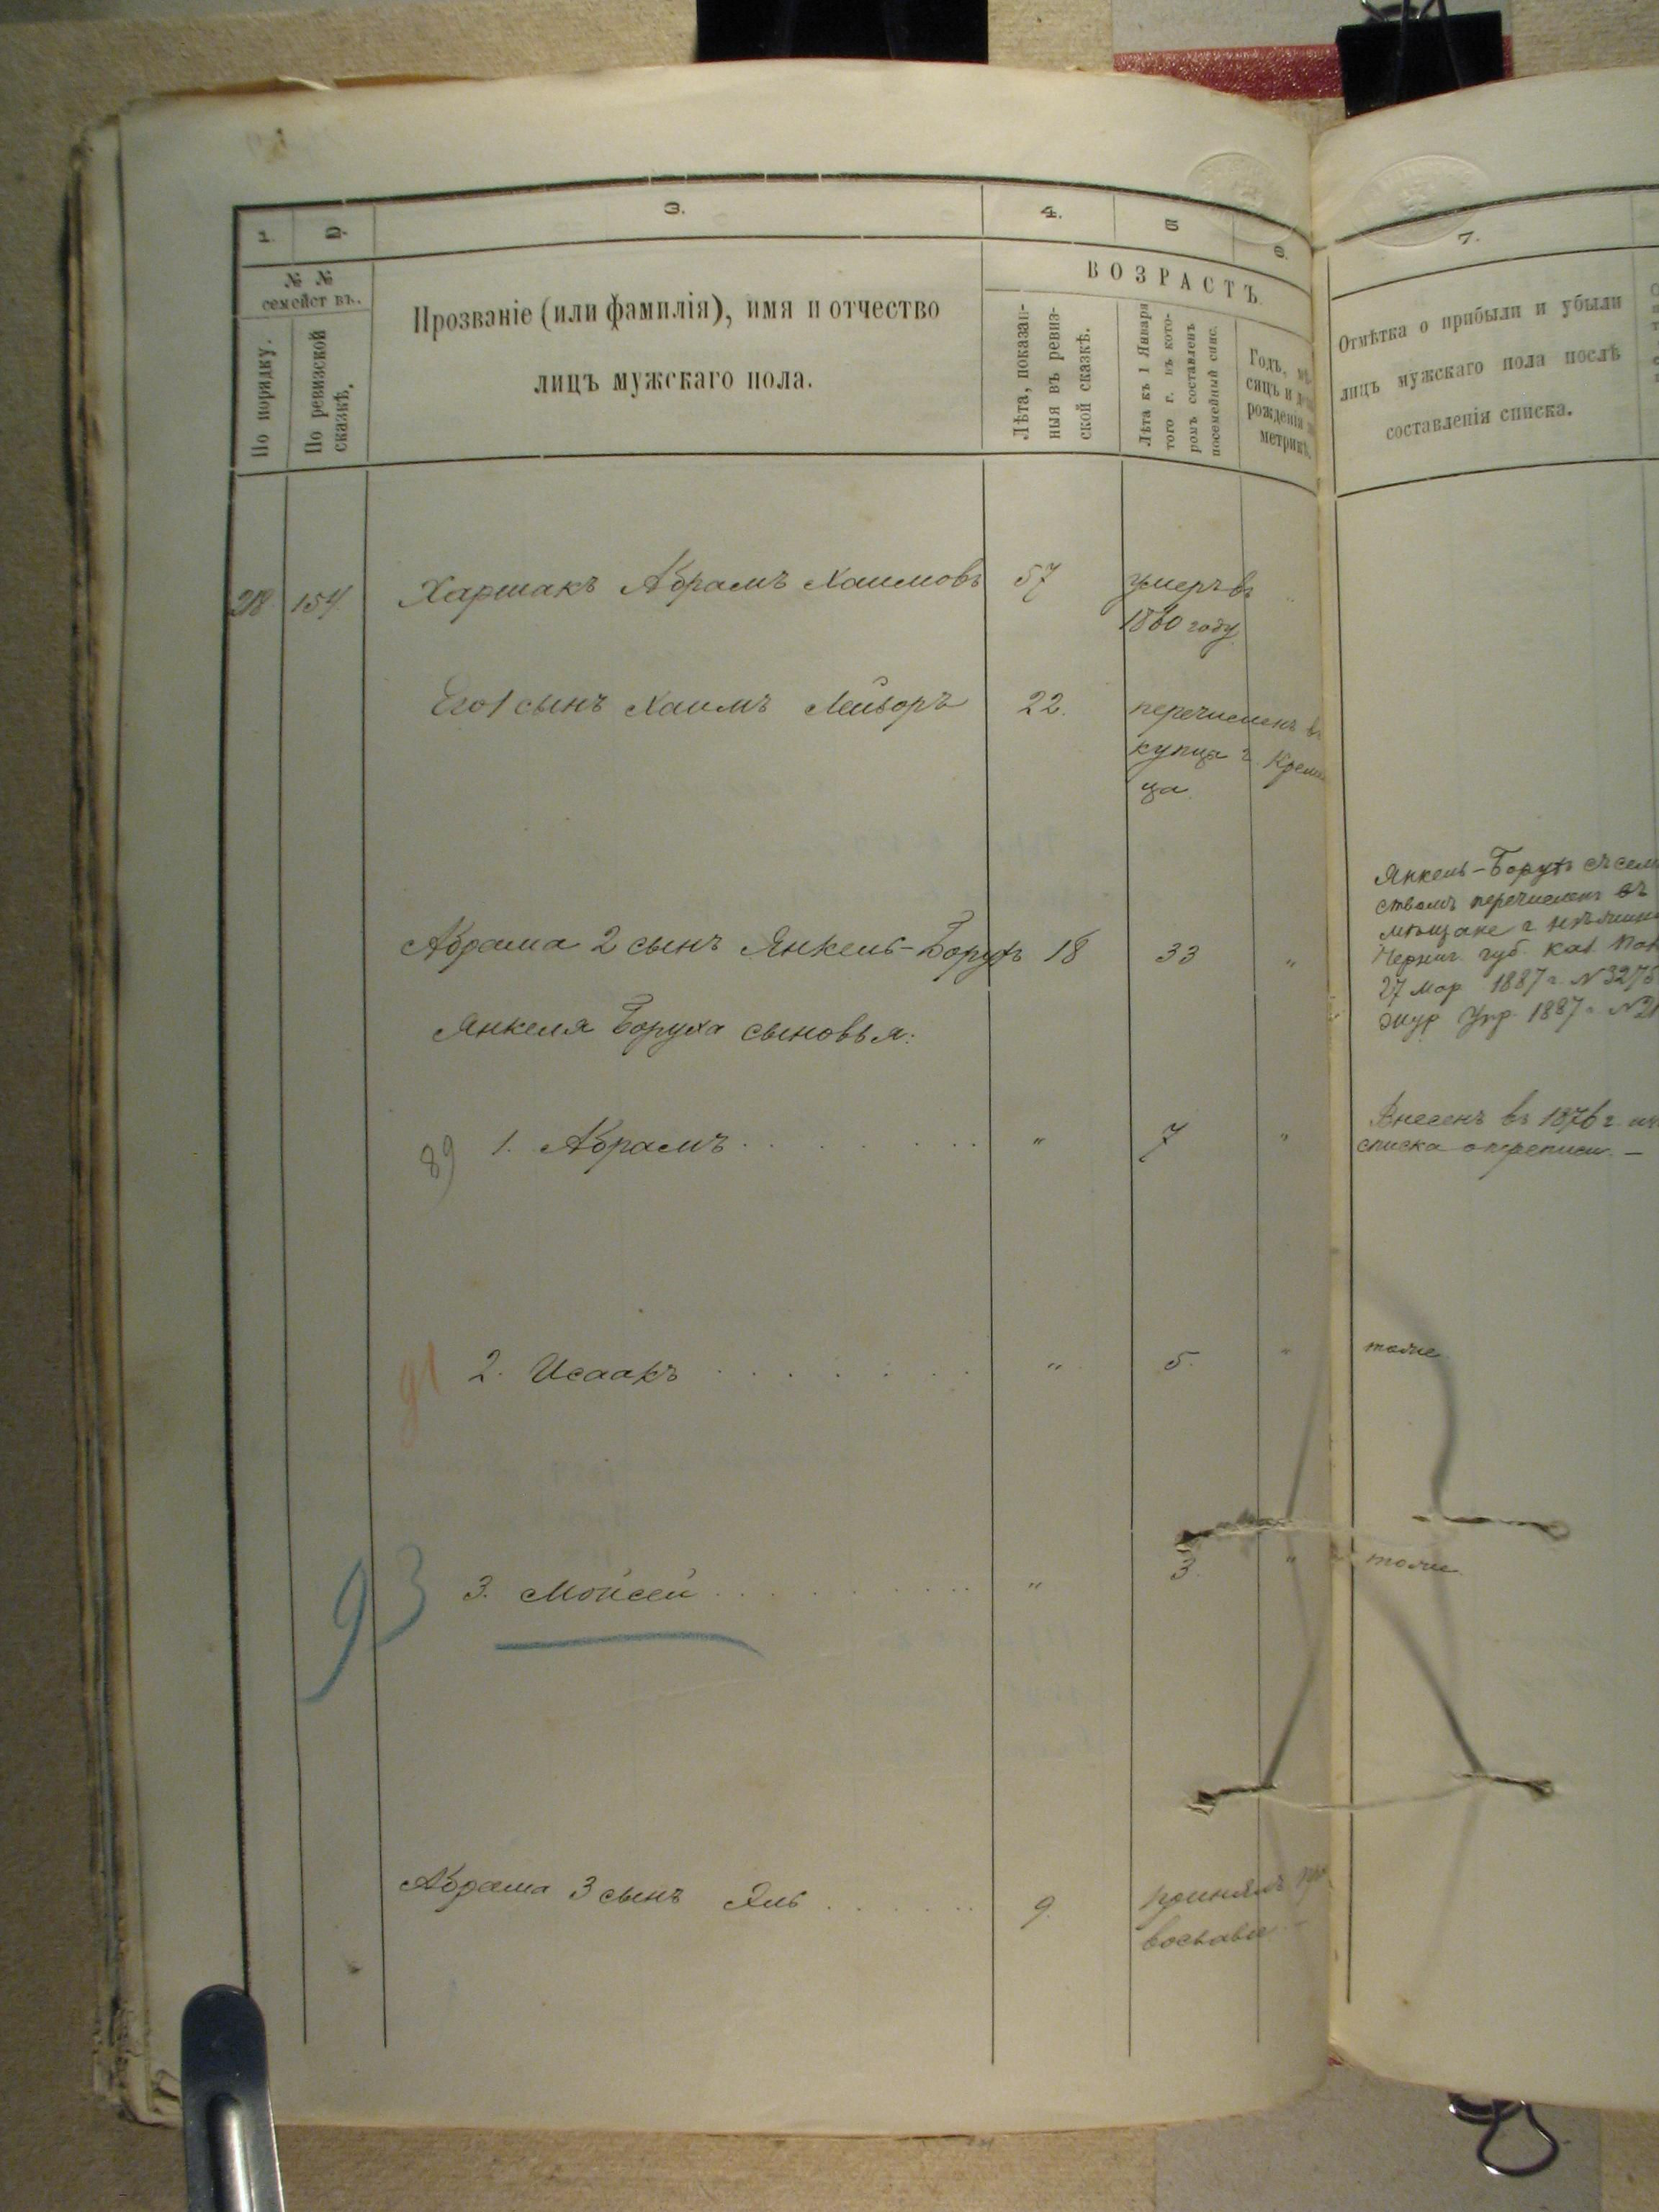 1. 2. 3. 4. 5 6. 7.
№ № семействъ.
По порядку.
По ревизской сказкѣ.
Прозваніе (или фамилія), имя и отчество
лицъ мужскаго пола.
ВОЗРАСТЪ.
Лѣта, показан-
ныя въ ревиз-
ской сказкѣ.
Лѣта къ 1 Января
того г. въ кото-
ромъ составленъ
посемейный спис.
Годъ, мѣ-
сяцъ и
рожденія
метрик
Отмѣтка о прибыли и убыли
лицъ мужскаго пола послѣ
составленія списка.
218. 154. Харшакъ Абрамъ Хаимовъ 57 умеръ въ
1860 году
Его 1 сынъ Хаимъ Лейзоръ 22. перечисленъ в
купца г. Креме
ца
Абрама 2 сынъ Янкель-Борухъ 18 33 "
Янкель-Борухъ съ сем
ствомъ перечисленъ въ
мѣщане г. Нѣжина
Черниг. губ. Каз. Пал
27 мар 1887 г. № 3275
жур Упр. 1887 г. № 2
Янкеля Боруха сыновья:
89 1. Абрамъ . . . . . " 7 "
Внесенъ въ 1876 г. из
списка о переписи. —
91 2. Исаакъ . . . . . . . " 5. " тоже
93 3. Мойсей . . . . . . . " 3. " тоже
Абрама 3 сынъ Эль . . . . . . 9. принялъ пра
вославіе —